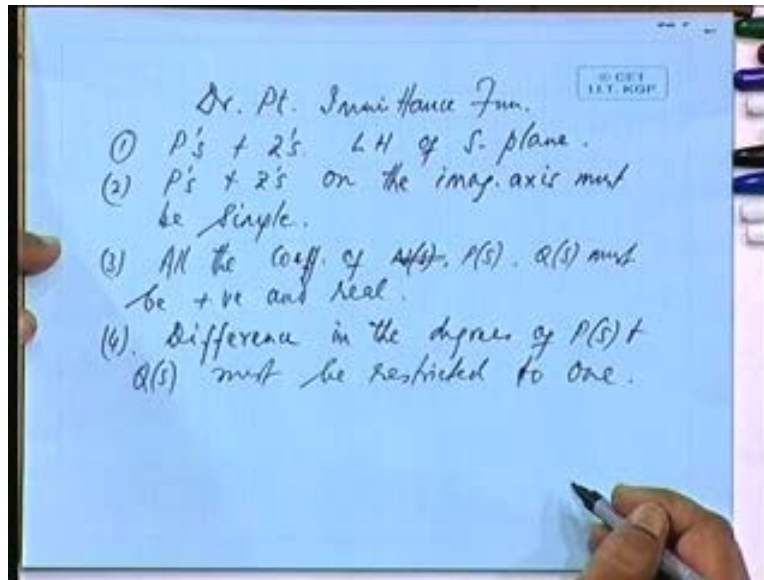 © CET
I.I.T. KGP
Dr. Pt. Immittance Fun.
① P's + Z's. LH of S-plane.
(2) P's + Z's on the imag. axis must
be simple.
(3) All the Coeff. of P(s). Q(s) must
be +ve and real.
(4). Difference in the degrees of P(s) +
Q(s) must be restricted to one.